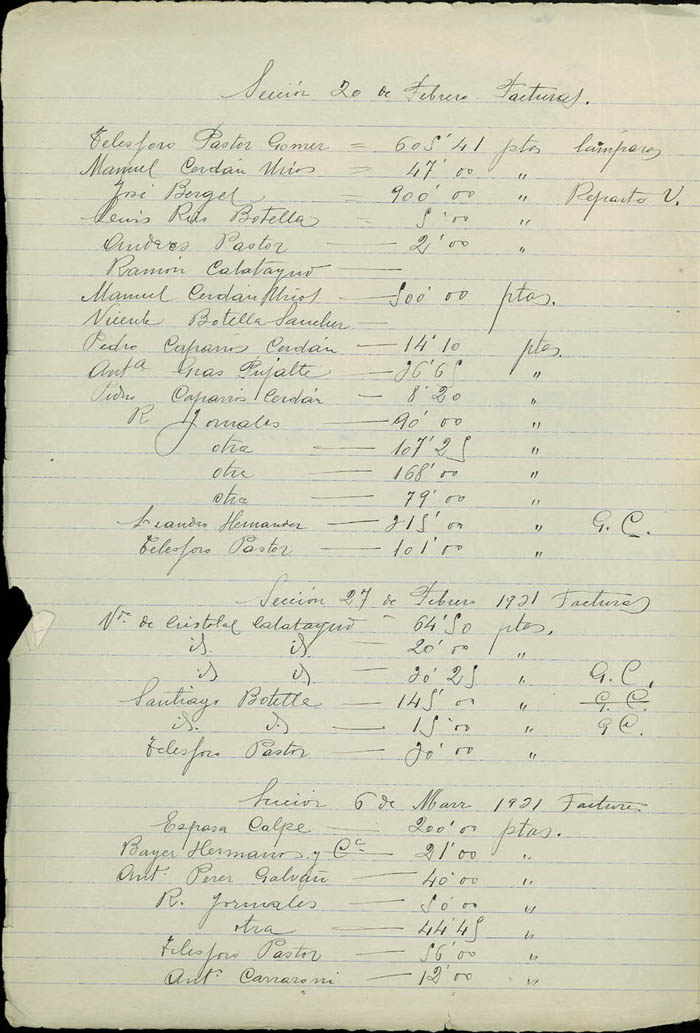 Sección 20 de Febrero Facturas.
Telesforo Pastor Gomez = 605'41 ptas lámparas
Manuel Cerdán Mirós = 47'00 "
José Berget = 900'00 " Reparto V.
Luis Rico Botella = 5'00 "
Andres Pastor — 2'00 "
Ramón Calatayud —
Manuel Cerdán Mirós — 500'00 ptas.
Vicente Botella Sanchez —
Pedro Caparros Cerdán — 14'10 ptas.
Antª Gras Pujalte — 36'65 "
Pedro Caparrós Cerdán — 8'20 "
R. Jornales — 90'00 "
otra — 107'25 "
otra — 168'00 "
otra — 79'00 "
Leandro Hernandez — 315'00 " G. C.
Telesforo Pastor — 101'00 "
Sección 27 de Febrero 1931 Facturas
Vda. de Cristobal Calatayud = 64'50 ptas.
id. id. — 20'00 "
id. id. — 30'25 " G. C.
Santiago Botella — 145'00 " G. C.
id. id. — 15'00 " G C.
Telesforo Pastor — 30'00 "
Sección 6 de Marz 1931 Facturas
Espasa Calpe — 200'00 ptas.
Bayer Hermanos y Cª — 21'00 "
Antº Perez Galvañ — 40'00 "
R. Jornales — 50'00 "
otra — 44'45 "
Telesforo Pastor — 56'00 "
Antº Carraroni — 12'00 "